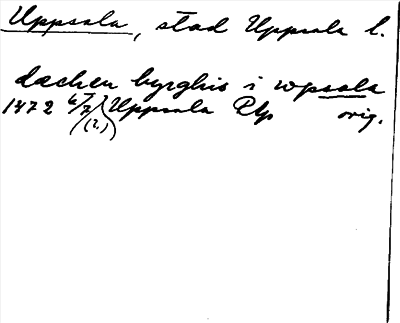 Uppsala, stad Uppsala l.
dachen byrghis i wpsala
1472 6/7 (?) Uppsala RAp orig.